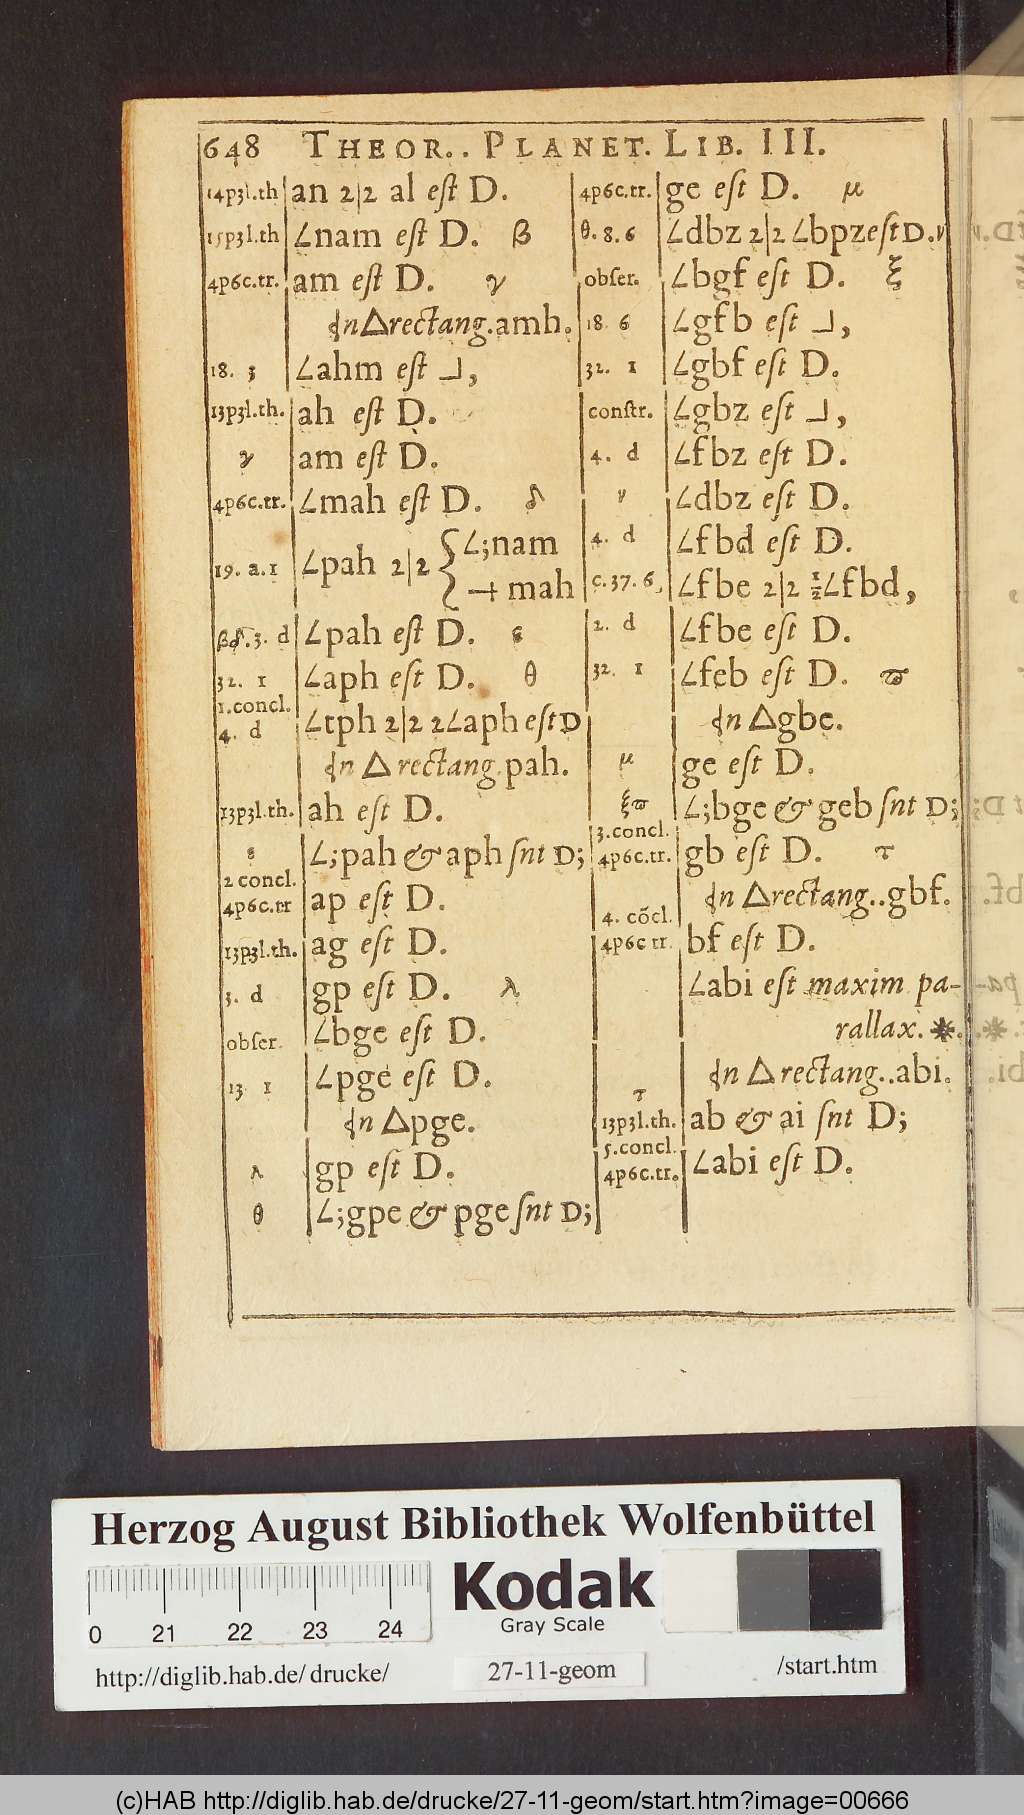 648 THEOR.. PLANET. LIB. III.
14p3l.th an 2|2 al est D.
15p3l.th ∠nam est D. β
4p6c.tr. am est D. γ
In △rectang.amh.
18. 3 ∠ahm est ⅃,
13p3l.th. ah est D.
γ am est D.
4p6c.tr. ∠mah est D. δ
19. a.1 ∠pah 2|2 { ∠;nam
⊣ mah
βδ.3. d ∠pah est D. ε
32. 1 ∠aph est D. θ
1.concl.
4. d ∠tph 2|2 2∠aph est D
In △ rectang.pah.
13p3l.th. ah est D.
ε ∠;pah & aph snt D;
2 concl.
4p6c.tr ap est D.
13p3l.th. ag est D.
3. d gp est D. λ
obser. ∠bge est D.
13 1 ∠pge est D.
In △pge.
λ gp est D.
θ ∠;gpe & pge snt D;
4p6c.tr. ge est D. μ
θ.8.6 ∠dbz 2|2 ∠bpz est D.ν
obser. ∠bgf est D. ξ
18. 6 ∠gfb est ⅃,
32. 1 ∠gbf est D.
constr. ∠gbz est ⅃,
4. d ∠fbz est D.
ν ∠dbz est D.
4. d ∠fbd est D.
c.37.6. ∠fbe 2|2 ½∠fbd,
2. d ∠fbe est D.
32. 1 ∠feb est D. ϖ
In △gbe.
μ ge est D.
ξϖ ∠;bge & geb snt D;
3.concl.
4p6c.tr. gb est D. τ
In △rectang..gbf.
4. cōcl.
4p6c tr. bf est D.
∠abi est maxim pa-
rallax. ✱.
In △ rectang..abi.
τ
13p3l.th. ab & ai snt D;
5.concl.
4p6c.tr. ∠abi est D.
Herzog August Bibliothek Wolfenbüttel
Kodak
Gray Scale
0 21 22 23 24
http://diglib.hab.de/drucke/ 27-11-geom /start.htm
(c)HAB http://diglib.hab.de/drucke/27-11-geom/start.htm?image=00666